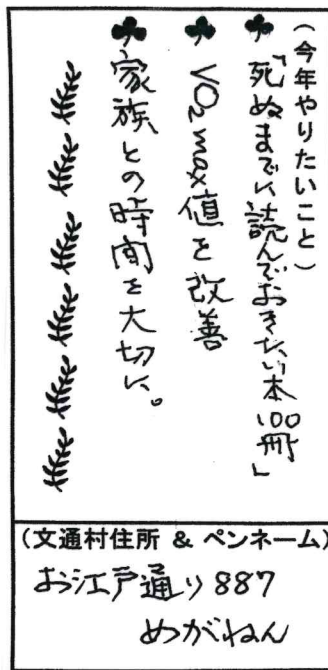 (今年やりたいこと)
♣「死ぬまでに読んでおきたい本100冊」
♣ VO₂max値を改善
♣家族との時間を大切に。
(文通村住所 & ペンネーム)
お江戸通り887
めがねん